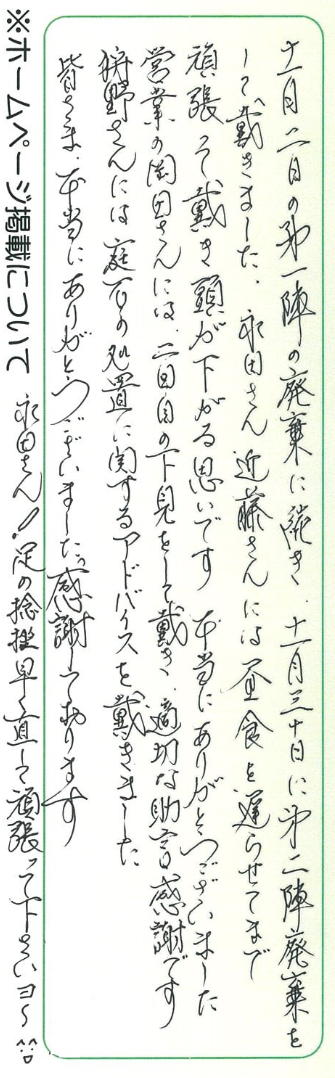 十一月二日の第一陣の廃棄に続き、十一月三十日に第二陣廃棄を
して戴きました。永田さん近藤さんには昼食を遅らせてまで
頑張って戴き頭が下がる思いです 本当にありがとうございました
営業の岡田さんには、二回目の下見をして戴き、適切な助言感謝です
狩野さんには庭石の処置に関するアドバイスを戴きました
皆さま、本当にありがとうございました。感謝しております
永田さん！足の捻挫早く直して頑張って下さいヨ〜^^
※ホームページ掲載について